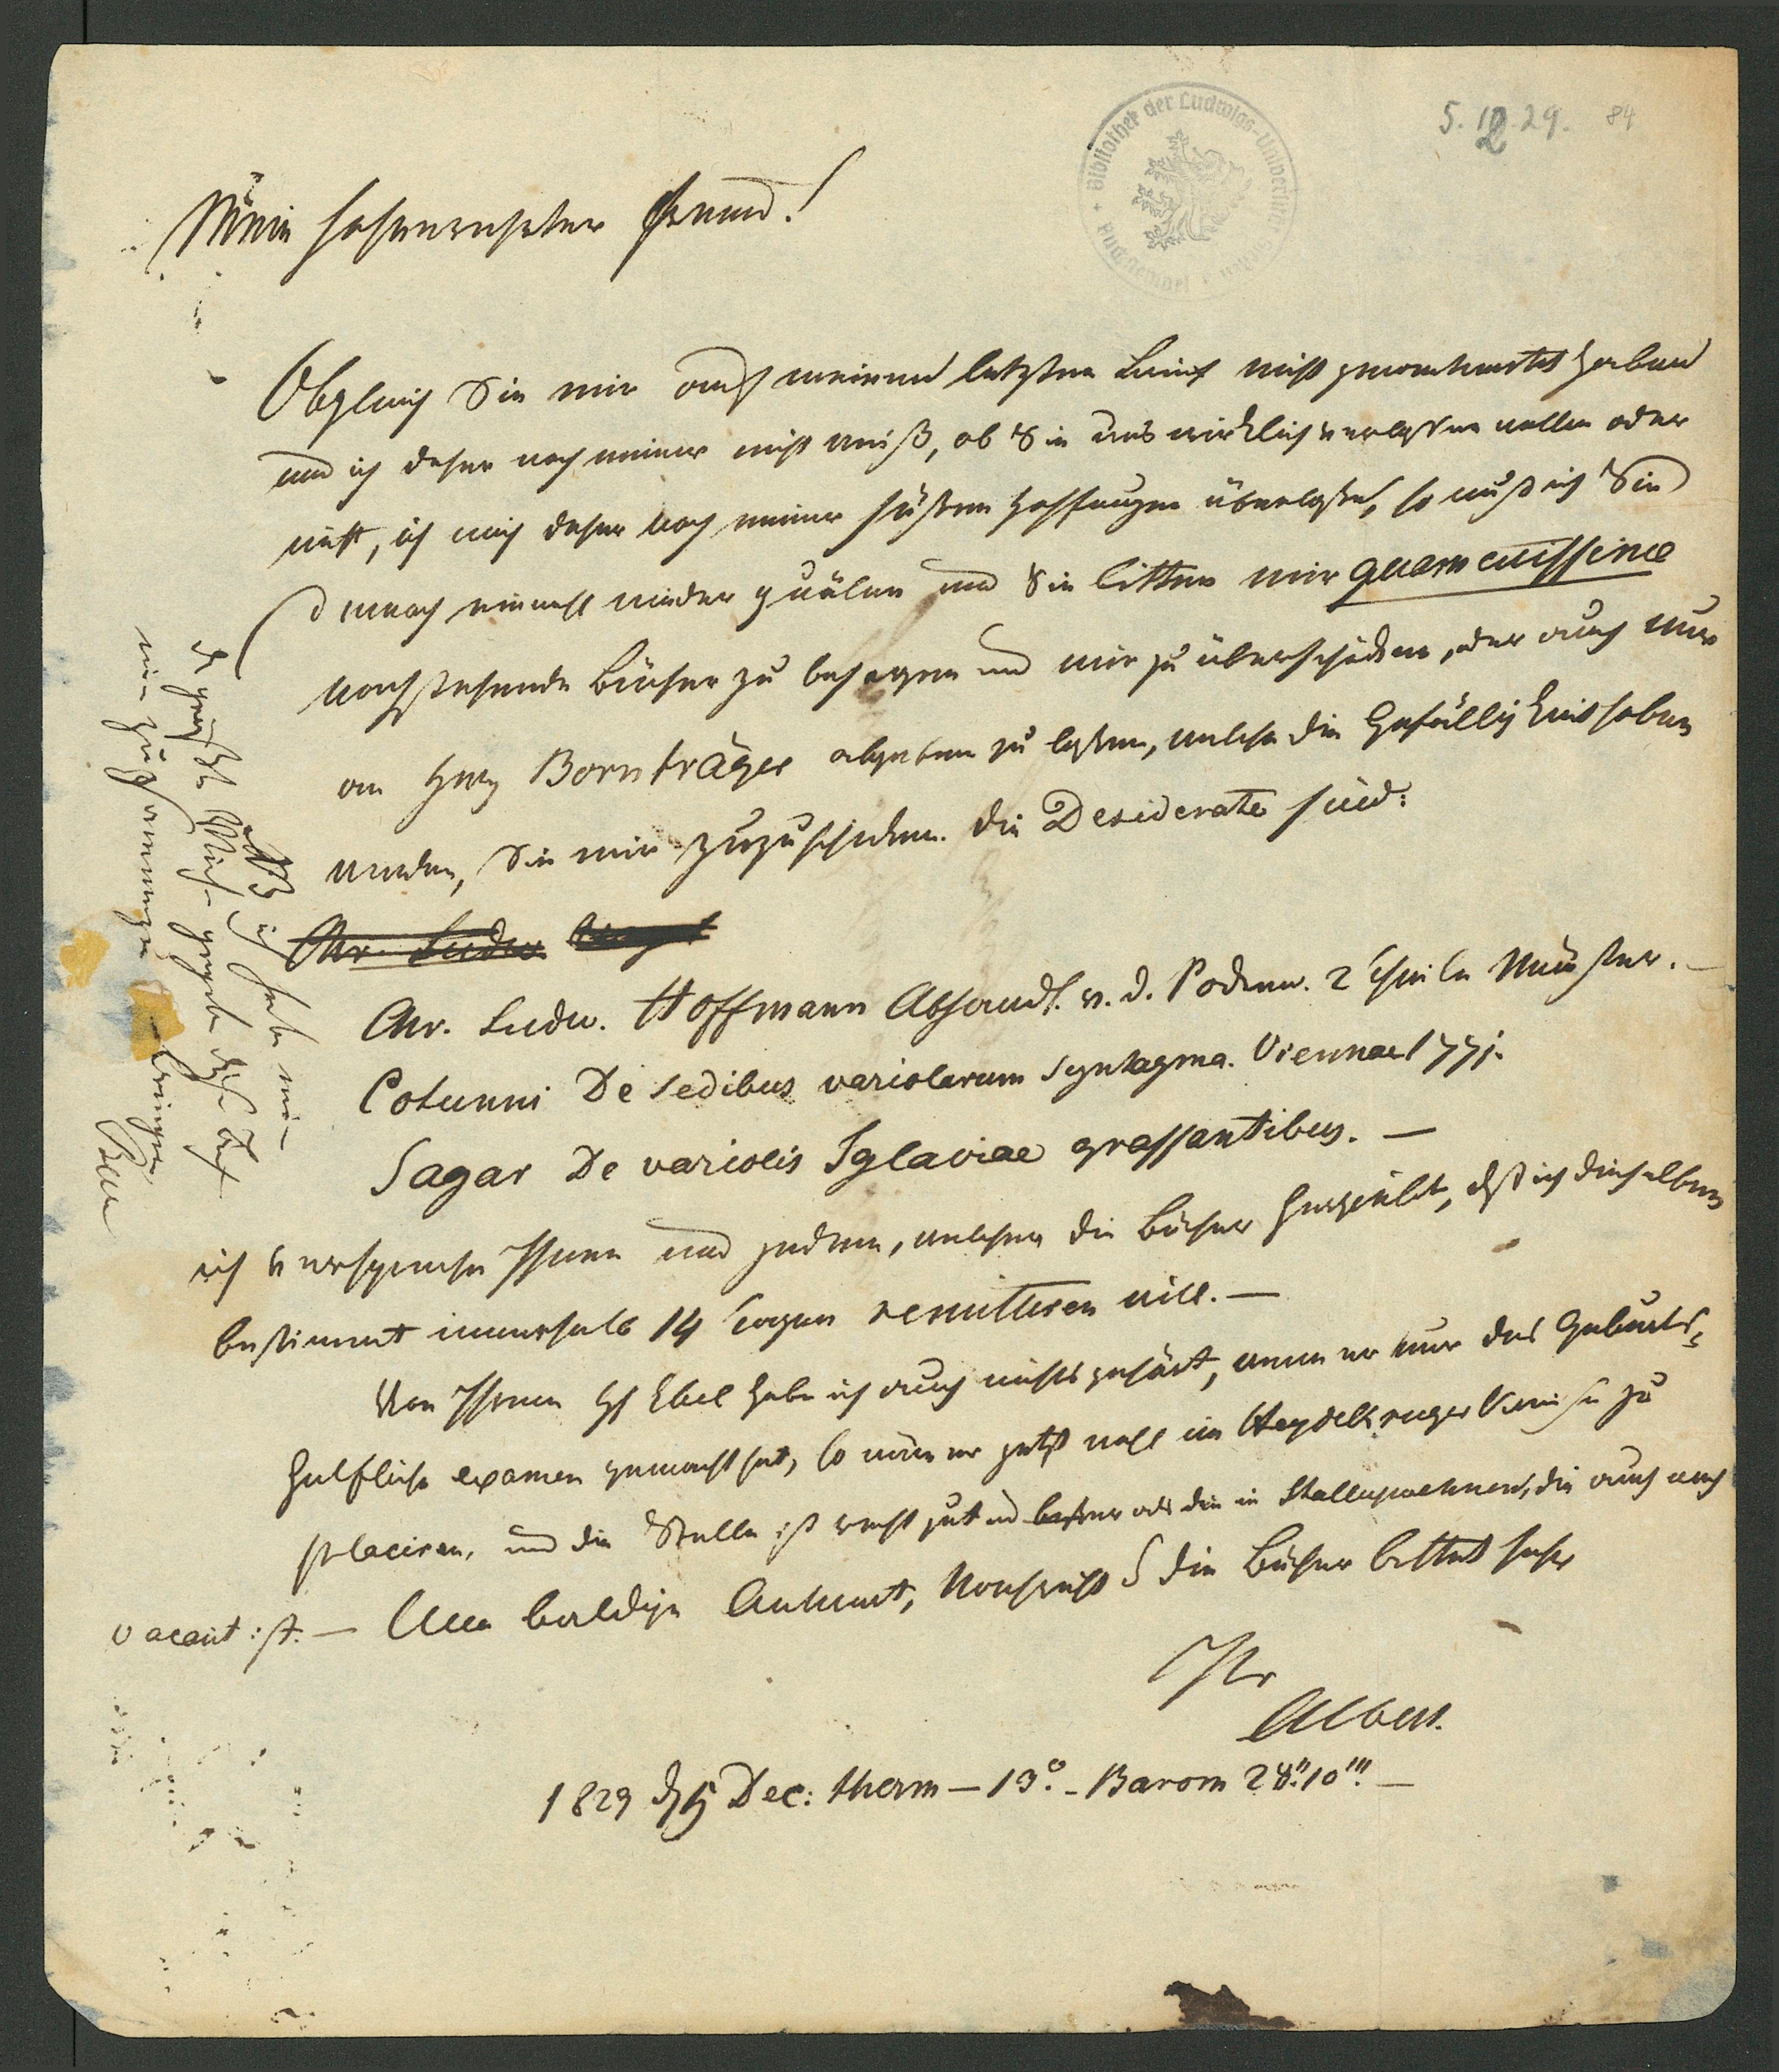 5. 12. 29. 84
Bibliothek der Ludwigs-Universität Giessen
Mein hochverehrter Freund!
Obgleich Sie mir auf meinen letzten Brief nicht geantwortet haben
und ich daher noch immer nicht weiß, ob Sie uns wirklich verlassen wollen oder
nicht, ich mich daher noch immer süßen Hoffnungen überlasse, so muß ich Sie
demnach einmal wieder quälen und Sie bitten mir quam citissime
nachstehende Bücher zu besorgen und mir zu überschicken, oder auch nur
an Hrn Bornträger abgeben zu lassen, welcher die Gefälligkeit haben
werden, Sie mir zuzuschicken. Die Desiderate sind:
Chr. Ludw.
Chr. Ludw. Hoffmann Abhandl. v. d. Pocken. 2 Theile Münster. —
Cotunni De sedibus variolarum syntagma. Viennae 1771.
Sagar De variolis Iglaviae grassantibus. —
ich verspreche Ihnen und jedem, welcher die Bücher hergiebt, daß ich dieselben
bestimmt innerhalb 14 Tagen remittiren will. —
Von Ihrem H Ebel habe ich auch nichts gehört, wenn er nur das Geburts-
hülfliche examen gemacht hat, so wäre er jetzt wohl im Heydekruger Kreise zu
placiren, und die Stelle ist recht gut und besser als die in Stallupoehnen, die auch noch
vacant ist. — Um baldige Antwort, Nachricht & die Bücher bittet sehr
Ihr
Albers.
1829 d 5 Dec: therm — 13°. - Barom 28".10'''. —
daß ich habe mir
die größte Mühe gegeben diese
mir zusammen bringen